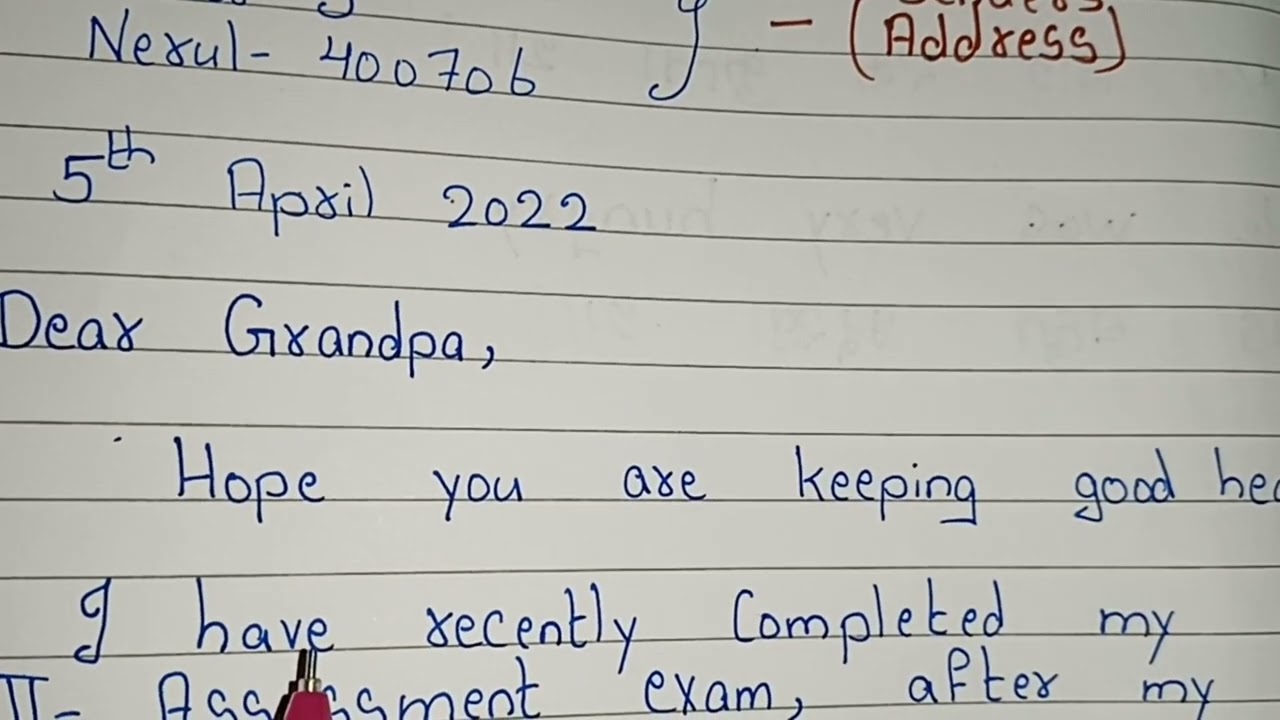 (Address)
Nerul- 400706 } -
5th April 2022
Dear Grandpa,
Hope you are keeping good hea
I have recently Completed my
II- Assessment exam, after my